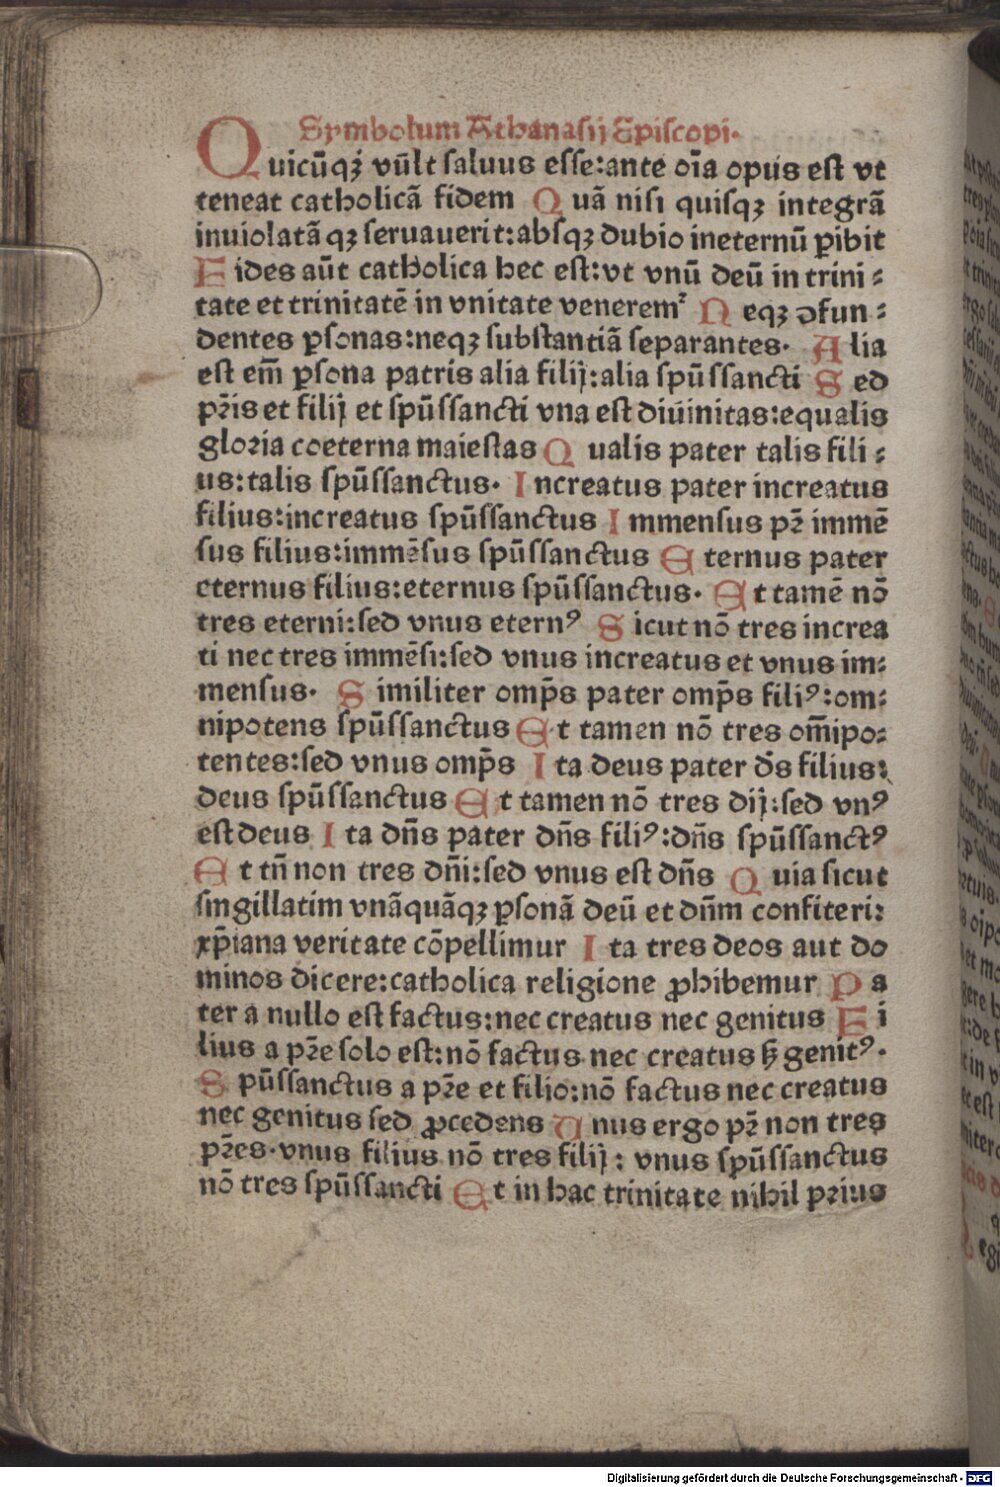 Symbolum Athanasij Episcopi.
Quicūqꝫ vūlt saluus esse:ante oīa opus est vt
teneat catholicā fidem Quā nisi quisqꝫ integrā
inuiolatāqꝫ seruauerit:absqꝫ dubio ineternū ꝑibit
Fides aūt catholica hec est:vt vnū deū in trini⸗
tate et trinitatē in vnitate veneremᷣ Neqꝫ ꝯfun⸗
dentes ꝑsonas:neqꝫ substantiā separantes. Alia
est em̄ ꝑsona patris alia filij:alia spūssancti Sed
pr̄is et filij et spūssancti vna est diuinitas:equalis
gloria coeterna maiestas Qualis pater talis fili⸗
us:talis spūssanctus. Increatus pater increatus
filius:increatus spūssanctus Immensus pr̄ immē
sus filius:immēsus spūssanctus Eternus pater
eternus filius:eternus spūssanctus. Et tamē nō
tres eterni:sed vnus eternꝰ Sicut nō tres increa
ti nec tres immēsi:sed vnus increatus et vnus im⸗
mensus. Similiter omp̄s pater omp̄s filiꝰ:om⸗
nipotens spūssanctus Et tamen nō tres om̄ipo⸗
tentes:sed vnus omp̄s Ita deus pater ds̄ filius:
deus spūssanctus Et tamen nō tres dij:sed vnꝰ
est deus Ita dn̄s pater dn̄s filiꝰ:dn̄s spūssanctꝰ
Et tn̄ non tres dn̄i:sed vnus est dn̄s Quia sicut
singillatim vnāquāqꝫ ꝑsonā deū et dn̄m confiteri:
xp̄iana veritate cōpellimur Ita tres deos aut do
minos dicere:catholica religione ꝓhibemur Pa
ter a nullo est factus:nec creatus nec genitus Fi
lius a pr̄e solo est:nō factus nec creatus ꜧ genitꝰ.
Spūssanctus a pr̄e et filio:nō factus nec creatus
nec genitus sed ꝓcedens Unus ergo pr̄ non tres
pr̄es.vnus filius nō tres filij: vnus spūssanctus
nō tres spūssancti Et in hac trinitate nihil prius
Digitalisierung gefördert durch die Deutsche Forschungsgemeinschaft - DFG